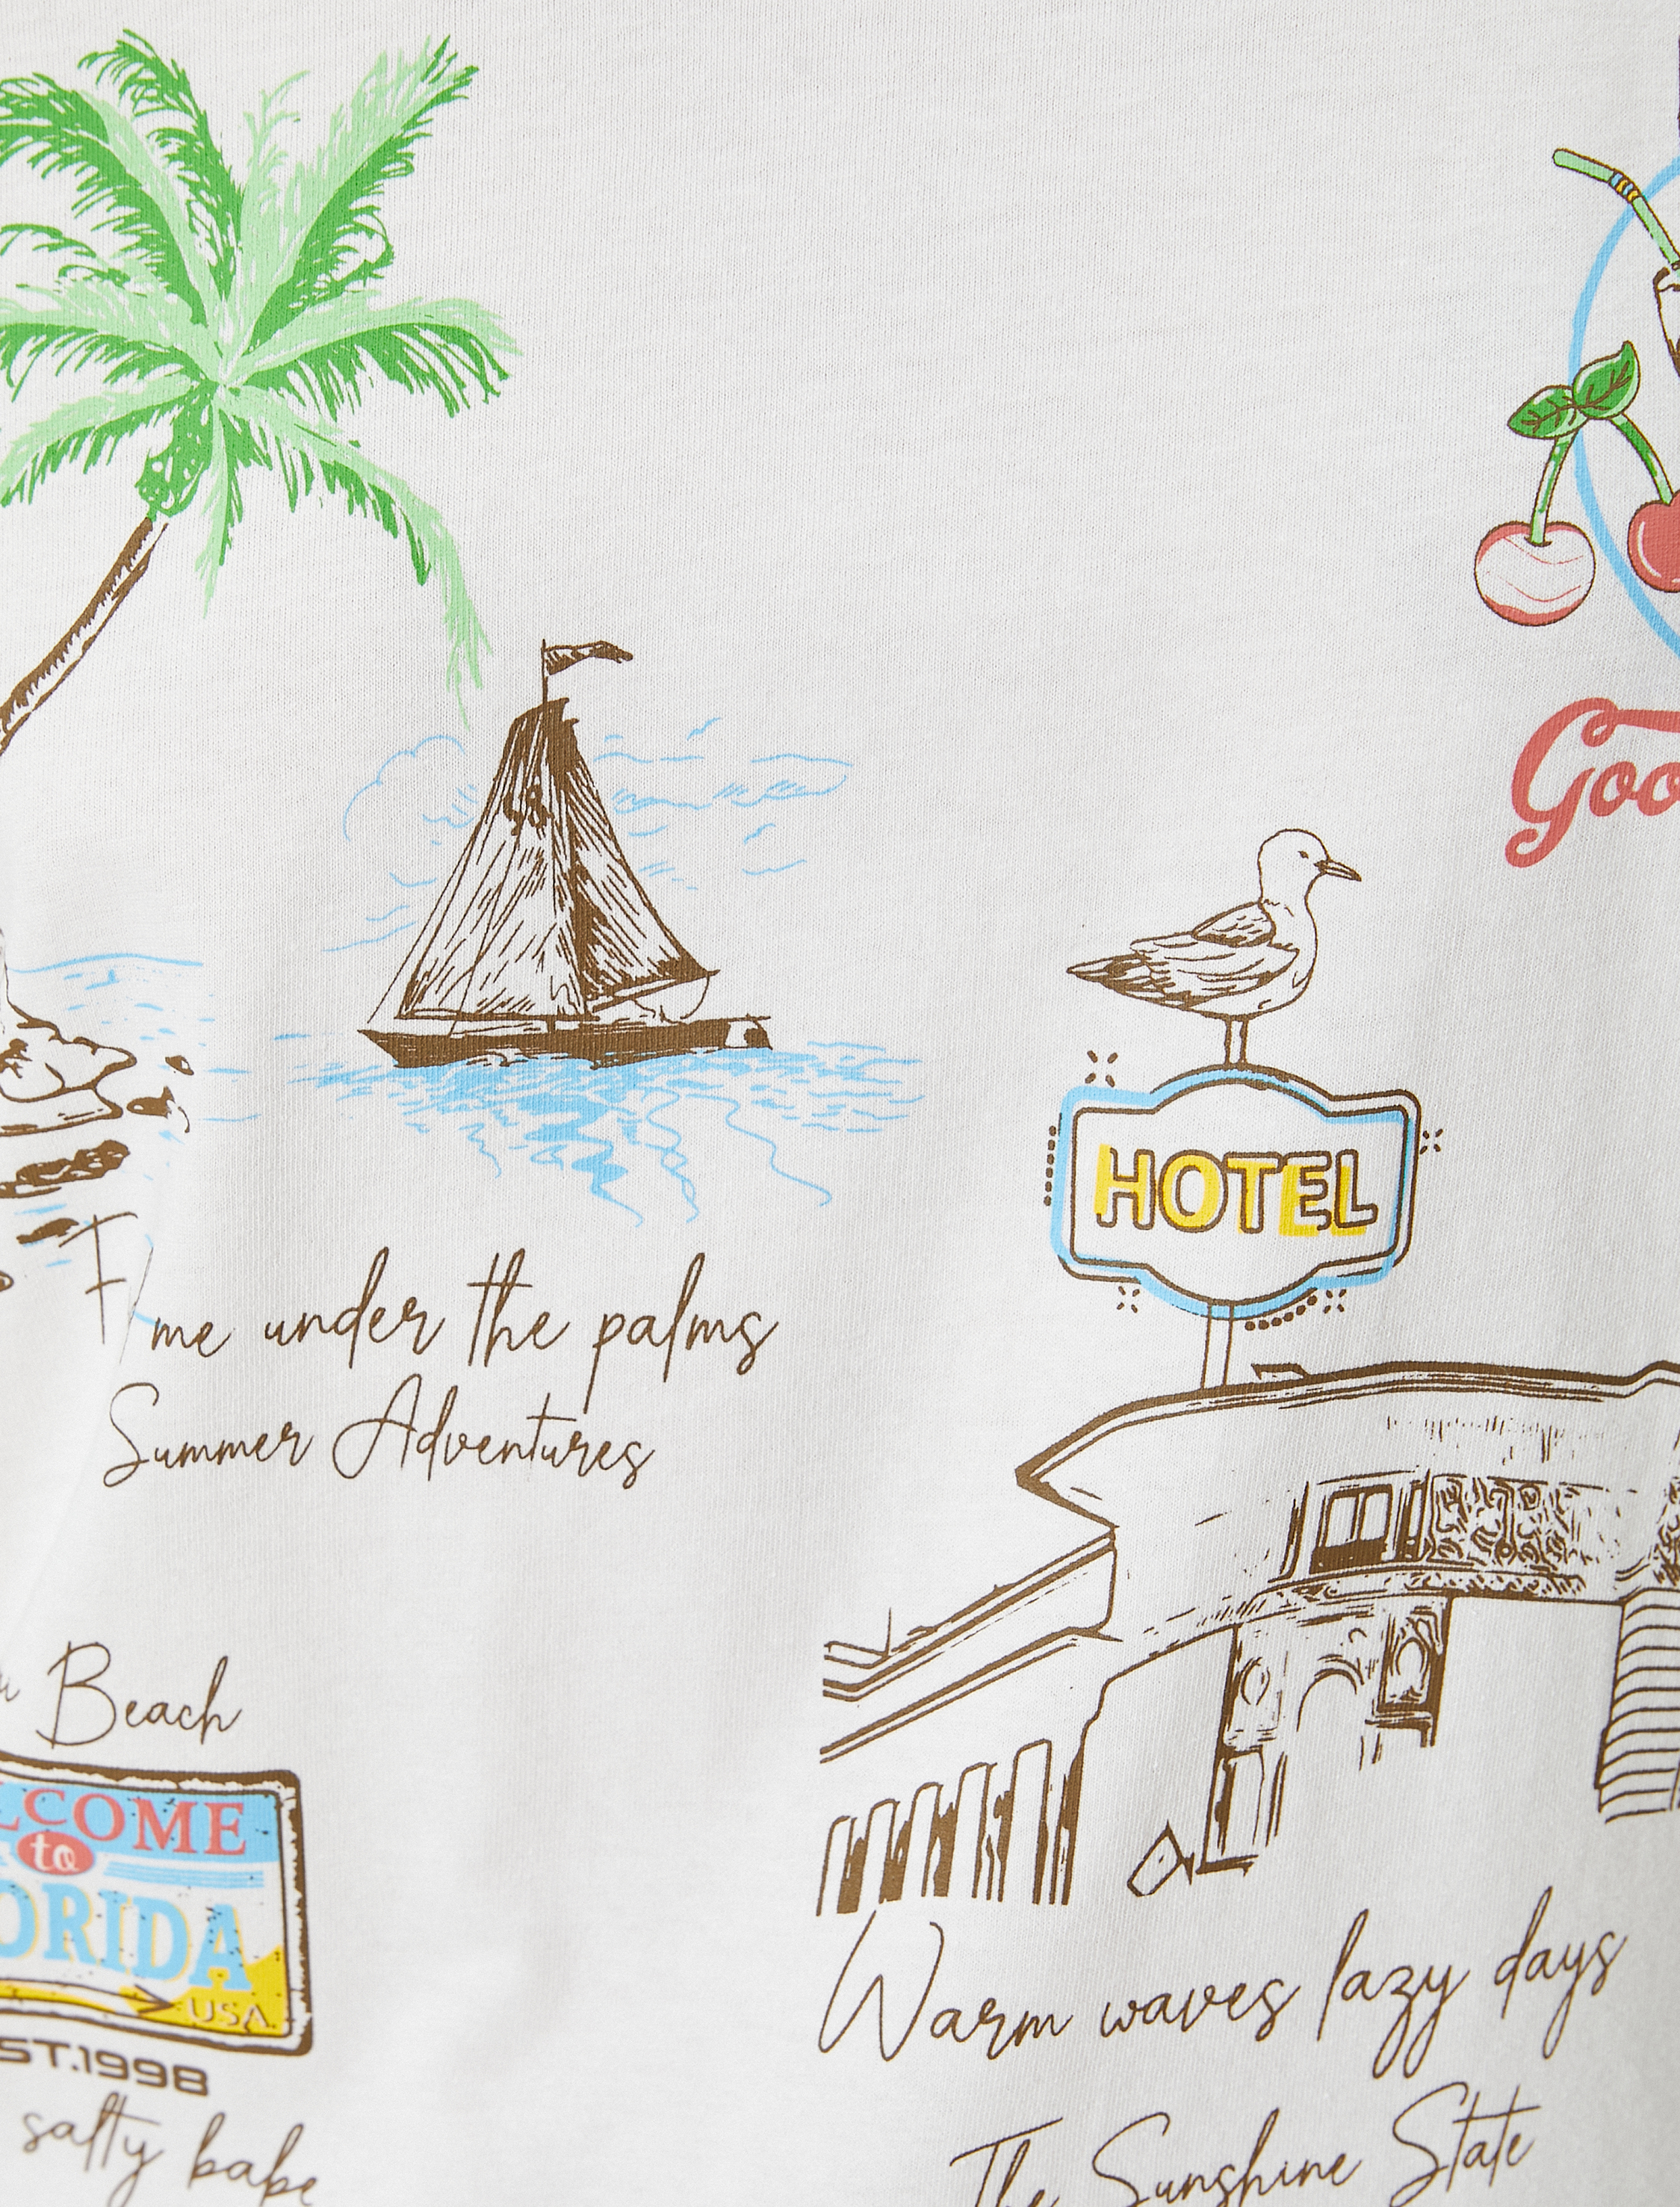 Goo
HOTEL
me under the palms
Summer Adventures
Beach
LCOME
to
ORIDA
USA
ST.1998
salty babe
Warm waves lazy days
The Sunshine State